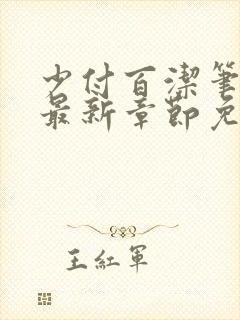 少付百潔筆
最新章節免
王紅軍